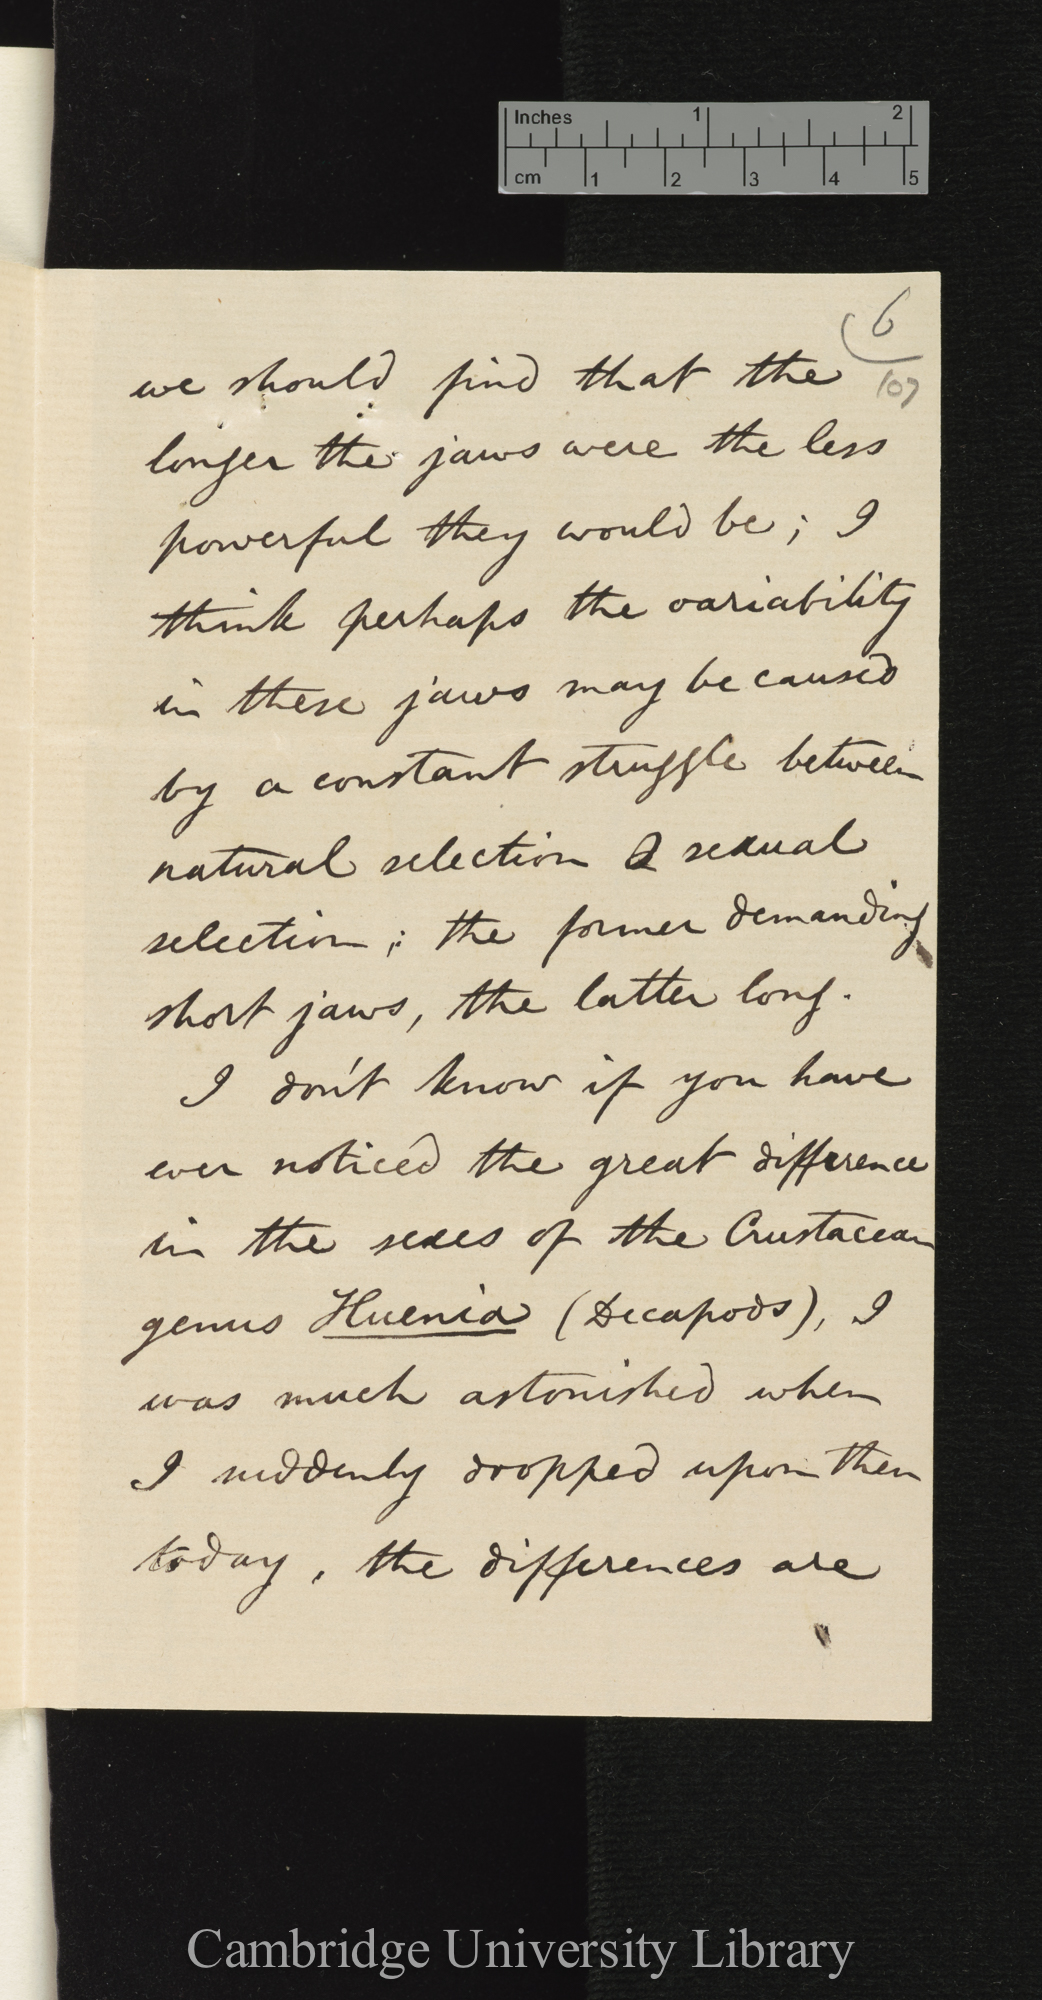 Inches 1 2
cm 1 2 3 4 5
6
107
we should find that the
longer the jaws were the less
powerful they would be; I
think perhaps the variability
in these jaws may be caused
by a constant struggle between
natural selection & sexual
selection; the former demanding
short jaws, the latter long.
I don't know if you have
ever noticed the great difference
in the sexes of the Crustacean
genus Huenia (Decapods), I
was much astonished when
I suddenly dropped upon them
today, the differences are
Cambridge University Library